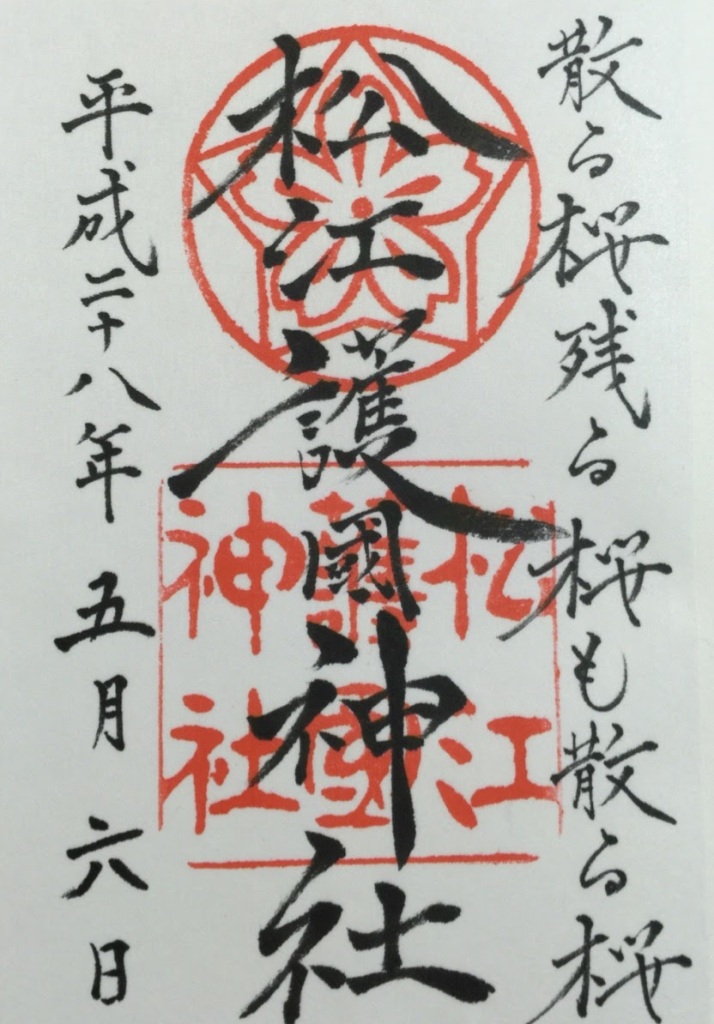 散る桜残る桜も散る桜
松江護國神社
平成二十八年五月六日
松江
護國
神社